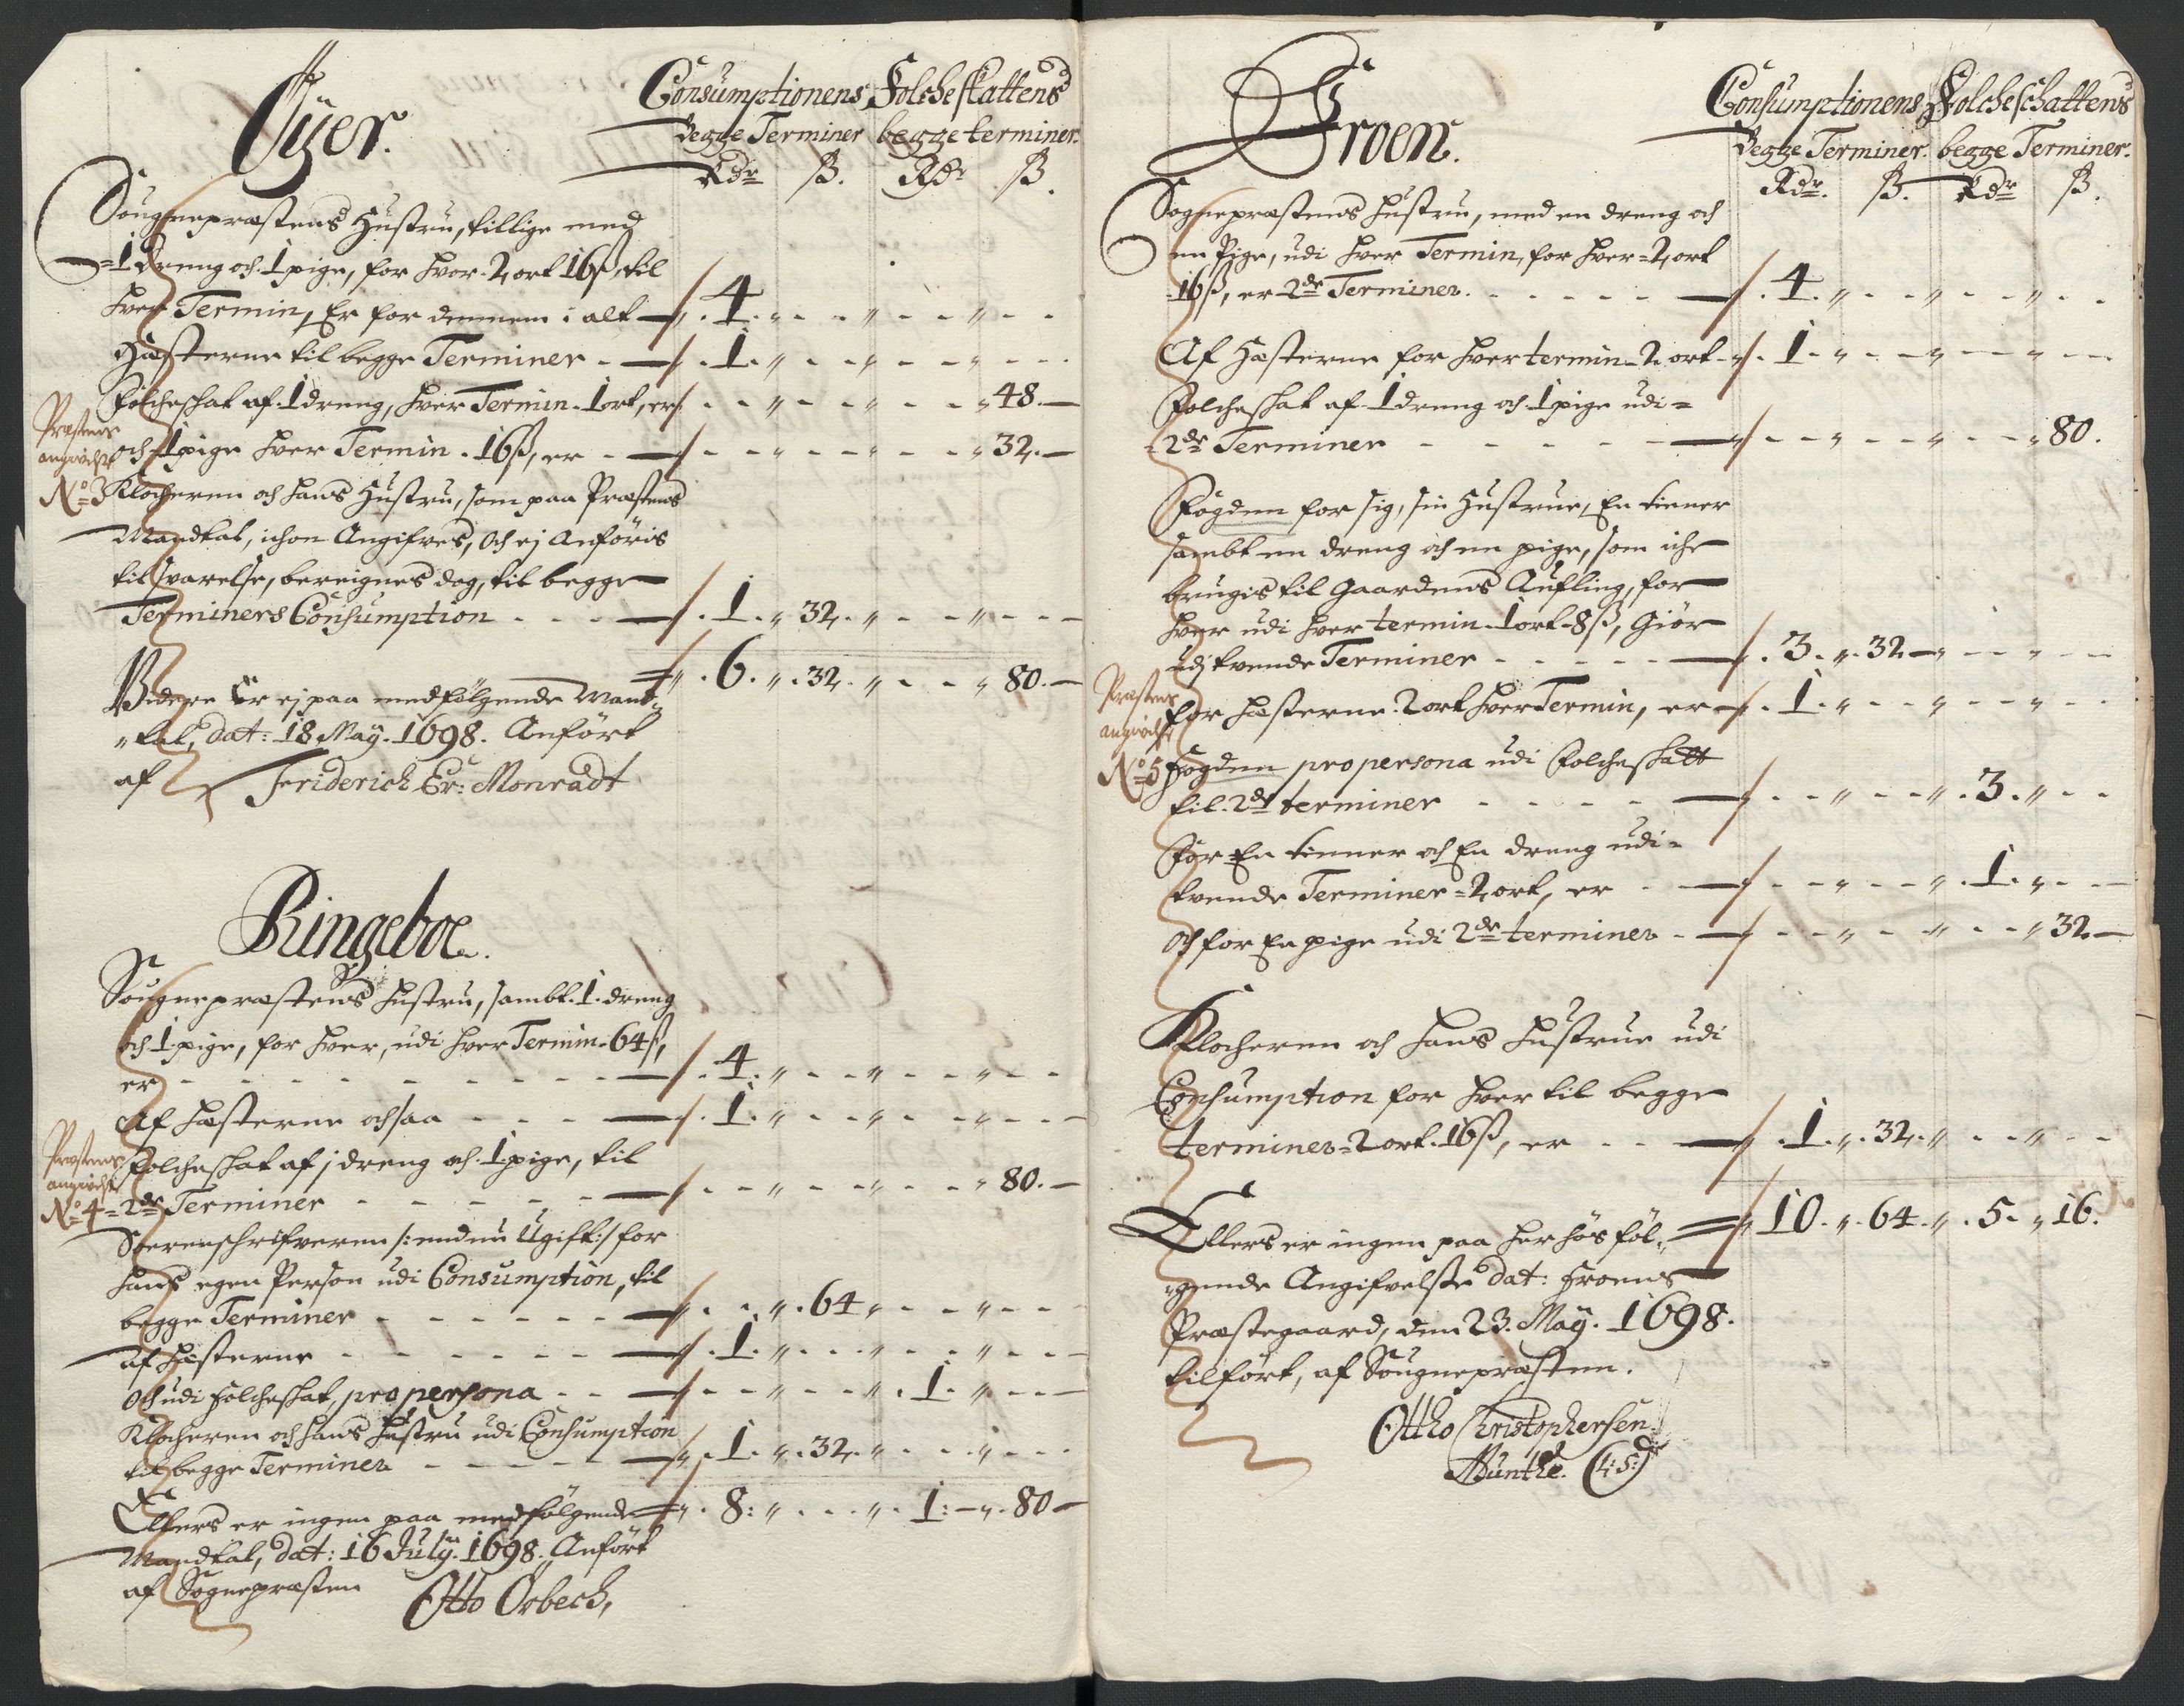 Øyer.
Consumptionens Folcheskattens
begge Terminer begge terminer.
Rdr ß. Rdr ß.
Sougnepræstens Hustru, tillige med
1 dreng och 1 pige, for hver 2 ort 16ß, til
hver Termin, Er for dennem i alt 4
Hæsterne til begge Terminer 1
Folcheskat af 1 dreng, hver Termin 1 ort, er 48.
och 1 pige hver Termin 16ß, er 32.
Præstens
angivelse
No 3
Klocheren och hans Hustru, som paa Præstens
Mandtal, Angifves, Och ej Anføris
til svarelse, bereignes dog, til begge
Terminers Consumption 1 32
6. 32. 80.
Videre Er ej paa medfølgende Mand-
tal, dat: 18 May. 1698. Anført
af Friderich Er: Monradt
Ringeboe.
Sougnepræstens Hustru, sambt 1 dreng
och 1 pige, for hver, udi hver Termin 64ß,
er 4
Af Hæsterne ochsaa 1
Præstens
angivelse
No 4
Folcheskat af j dreng och 1 pige, til
2de Terminer 80.
Soerenschrifveren /: endnu Ugift :/ for
hans egen Person udi Consumption, til
begge Terminer 64
af Hæsterne 1
Och udi Folcheskat, pro persona 1
Klocheren och hans Hustru udi Consumption
til begge Terminer 1. 32
Ellers er ingen paa medfølgende 8: 1: 80
Mandtal, dat: 16 July. 1698. Anført
af Sognepræsten
Otto Orbech,
Froen.
Consumptionens Folcheschattens
begge Terminer. begge Terminer.
Rdr. ß. Rdr ß.
Sognepræstens Hustru, med en dreng och
en Pige, udi hver Termin, for hver 2 ort
16ß, er 2de Terminer. 4
Af Hæsterne for hver termin 2 ort 1
Folcheskat af 1 dreng och 1 pige udi
2de Terminer 80.
Fogden for sig, sin Hustrue, En tiener
sambt en dreng och en pige, som iche
brugis til Gaardens Aufling, for
hver udi hver termin 1 ort 8ß, Giør
udj tvende Terminer 3. 32
Præstens
angivelse
No 5
for Hæsterne 2 ort hver Termin, er 1
Fogden pro persona udi Folcheskatt
til 2de terminer 3.
For En tienner och En dreng udi
tvende Terminer 2 ort, er 1.
Och for En pige udi 2de terminer 32
Klocheren och hans Hustrue udi
Consumption for hver til begge
terminer 2 ort 16ß, er 1. 32.
10. 64. 5. 16.
Ellers er ingen paa her hos føl-
gende Angifvelse dat: Froens
Præstegaard, den 23. May. 1698.
tilført, af Sougnepræsten.
Otho Christophersen
Munthe. (L:S:)